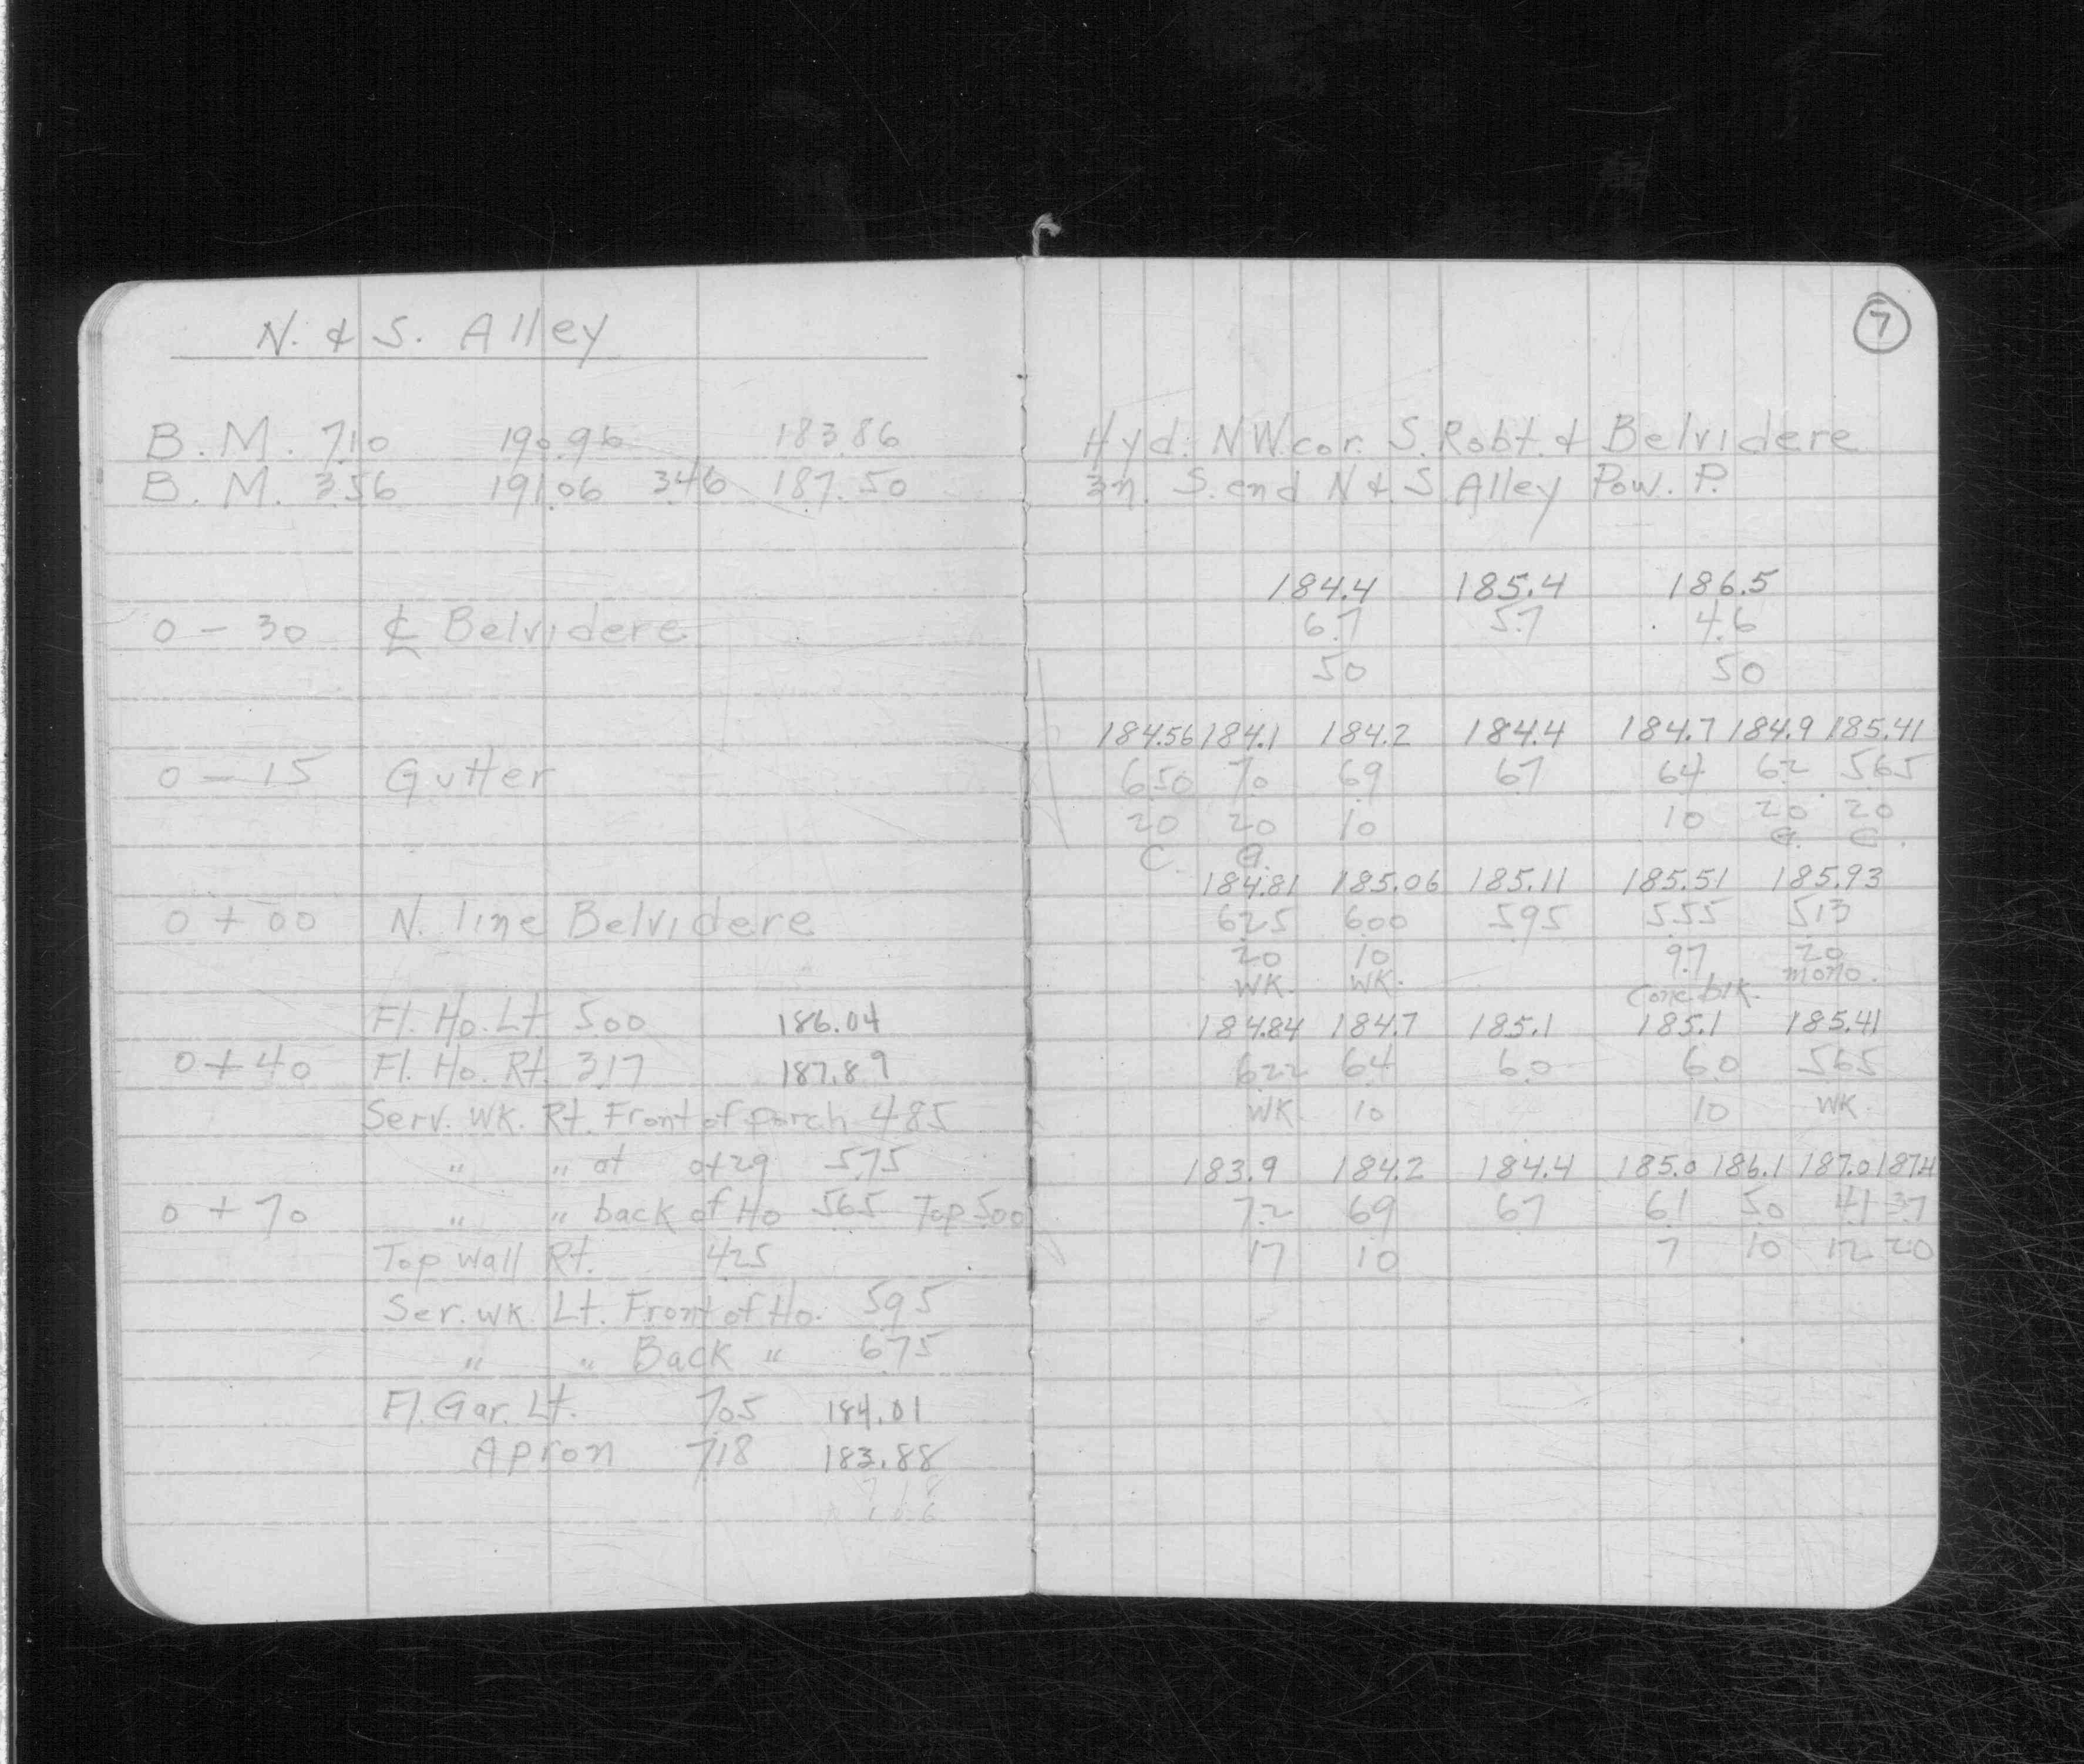 N. & S. Alley
B. M. 7.10 190.96 183.86
B. M. 3.56 191.06 3.46 187.50
0 - 30 ℄ Belvidere
0 - 15 Gutter
0 + 00 N. line Belvidere
Fl. Ho. Lt. 5.00 186.04
0 + 40 Fl. Ho. Rt. 3.17 187.89
Serv. WK. Rt. Front of porch 4.85
" " at 0+29 5.75
0 + 70 " " back of Ho 5.65 Top 5.00
Top Wall Rt. 4.25
Ser. WK. Lt. Front of Ho. 5.95
" " Back " 6.75
Fl. Gar. Lt. 7.05 184.01
Apron 7.18 183.88
7
Hyd. N.W. cor. S. Robt. & Belvidere
S. end N & S Alley Pow. P.
184.4 185.4 186.5
6.7 5.7 4.6
50 50
184.56 184.1 184.2 184.4 184.7 184.9 185.41
6.50 7.0 6.9 6.7 6.4 6.2 5.65
20 20 10 10 20 20
C. G. G. C.
184.81 185.06 185.11 185.51 185.93
6.25 6.00 5.95 5.55 5.13
20 10 9.7 20
WK. WK. Conc. blk. mono.
184.84 184.7 185.1 185.1 185.41
6.22 6.4 6.0 6.0 5.65
WK 10 10 WK
183.9 184.2 184.4 185.0 186.1 187.0 187.4
7.2 6.9 6.7 6.1 5.0 4.1 3.7
17 10 7 10 12 20